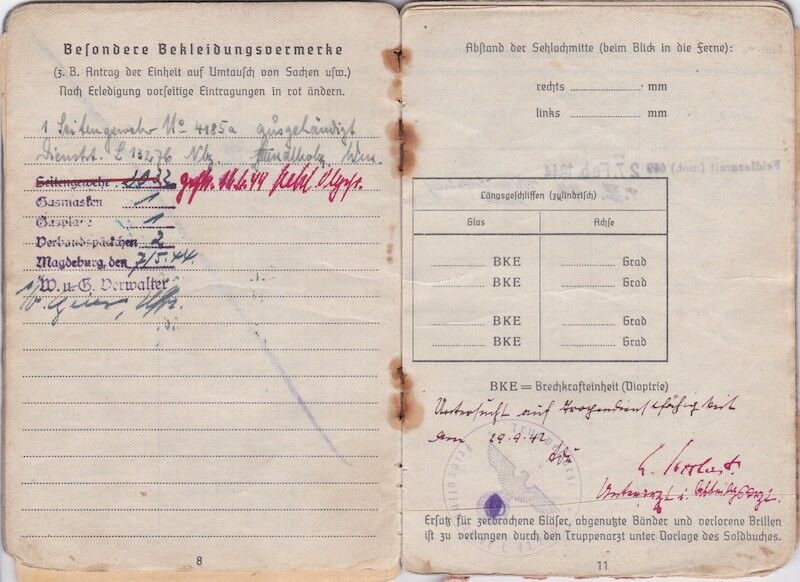 Besondere Bekleidungsvermerke
(z. B. Antrag der Einheit auf Umtausch von Sachen usw.)
Nach Erledigung vorseitige Eintragungen in rot ändern.
1 Seitengewehr No 4185a ausgehändigt
Dienstst. L 13276
Seitengewehr
Gasmasken 1
Gasplane 1
Verbandspäckchen 2
Magdeburg, den 7/5.44
W. u. G. Verwalter
8
Abstand der Sehlochmitte (beim Blick in die Ferne):
rechts mm
links mm
27. Feb. 1944
Längsgeschliffen (zylindrisch)
Glas Achse
BKE Grad
BKE Grad
BKE Grad
BKE Grad
BKE = Brechkrafteinheit (Dioptrie)
Untersucht auf Tropendienstfähigkeit
am 29.9.42
Unterarzt
Ersatz für zerbrochene Gläser, abgenutzte Bänder und verlorene Brillen
ist zu verlangen durch den Truppenarzt unter Vorlage des Soldbuches.
11